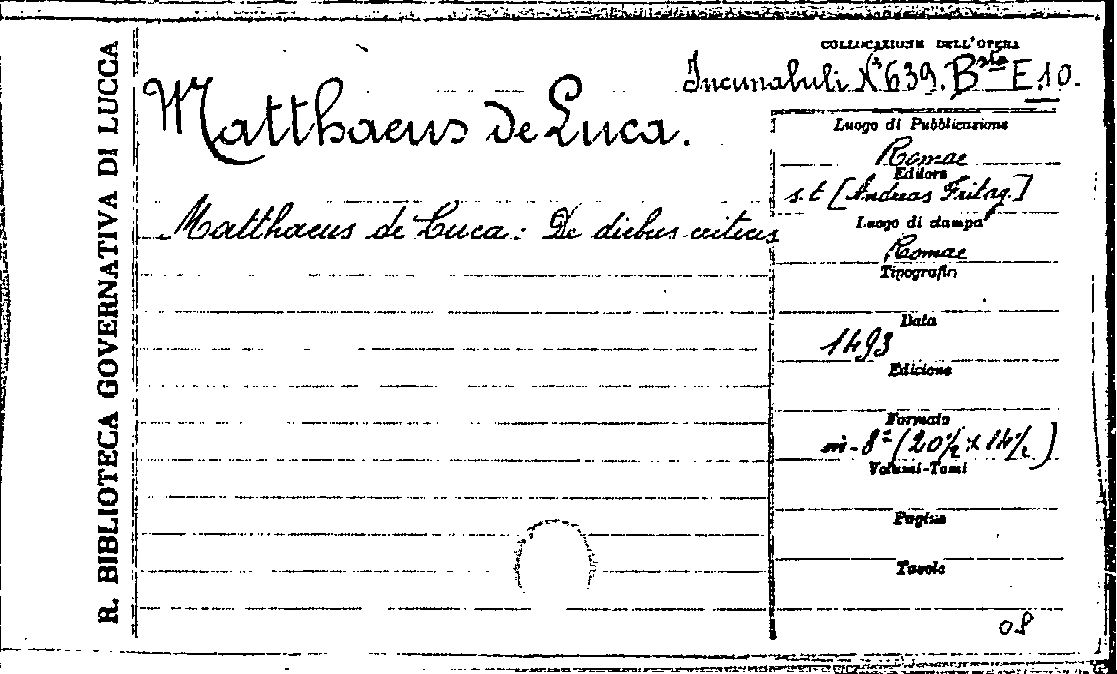 R. BIBLIOTECA GOVERNATIVA DI LUCCA
COLLOCAZIONE DELL'OPERA
Incunabuli N° 639. Bsta E.10.
Matthaeus de Luca.
Matthaeus de Luca: De diebus criticis
Luogo di Pubblicazione
Romae
Editore
s.t [Andreas Fritag.]
Luogo di stampa
Romae
Tipografia
Data
1493
Edizione
Formato
in-8° (20½ x 14½)
Volumi-Tomi
Pagine
Tavole
08